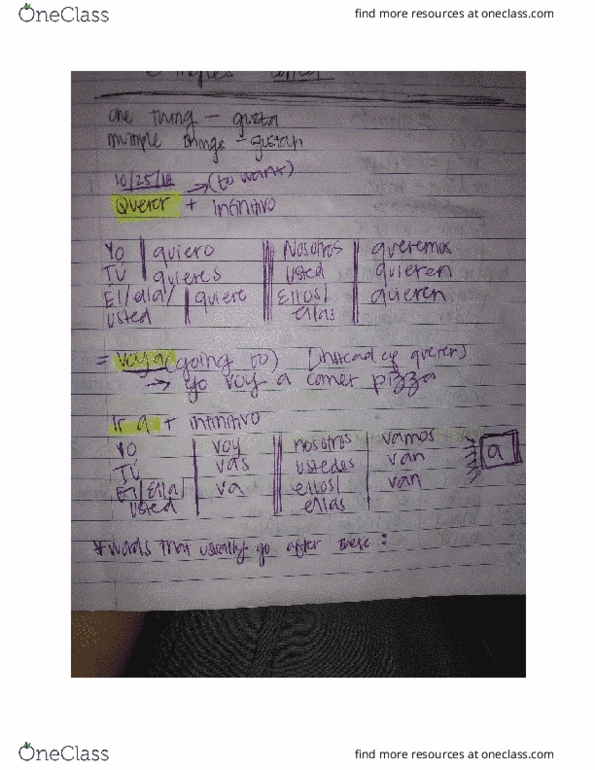 OneClass
find more resources at oneclass.com
one thing - gusta
multiple things - gustan
10/25/19 → (to want)
Querer + infinitivo
Yo | quiero || Nosotros | queremos
Tú | quieres || usted | quieren
Él/ella/ | quiere || Ellos/ | quieren
usted ellas
= voy a (going to) (instead of querer)
→ yo voy a comer pizza
Ir a + infinitivo
Yo | voy || nosotros | vamos
Tú | vas || ustedes | van a
Él/Ella/ | va || ellos/ | van
usted ellas
*words that usually go after these:
OneClass
find more resources at oneclass.com